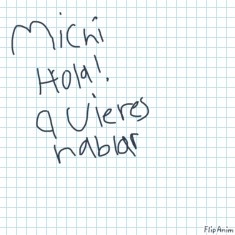 Michi
Hola!
quieres
hablar
FlipAnim